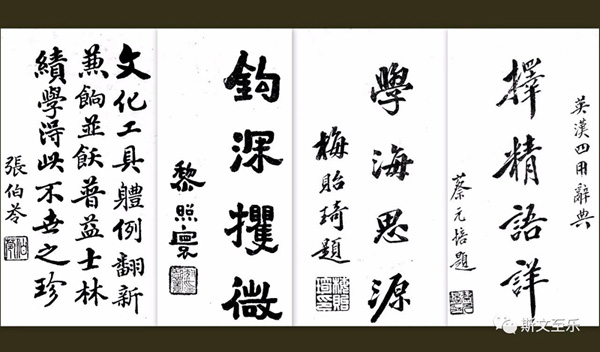 英漢四用辭典
擇精語詳
蔡元培題
學海思源
梅貽琦題
鈎深攫微
黎照寰
文化工具體例翻新
兼餉並飫普益士林
績學得此不世之珍
張伯苓
斯文至乐